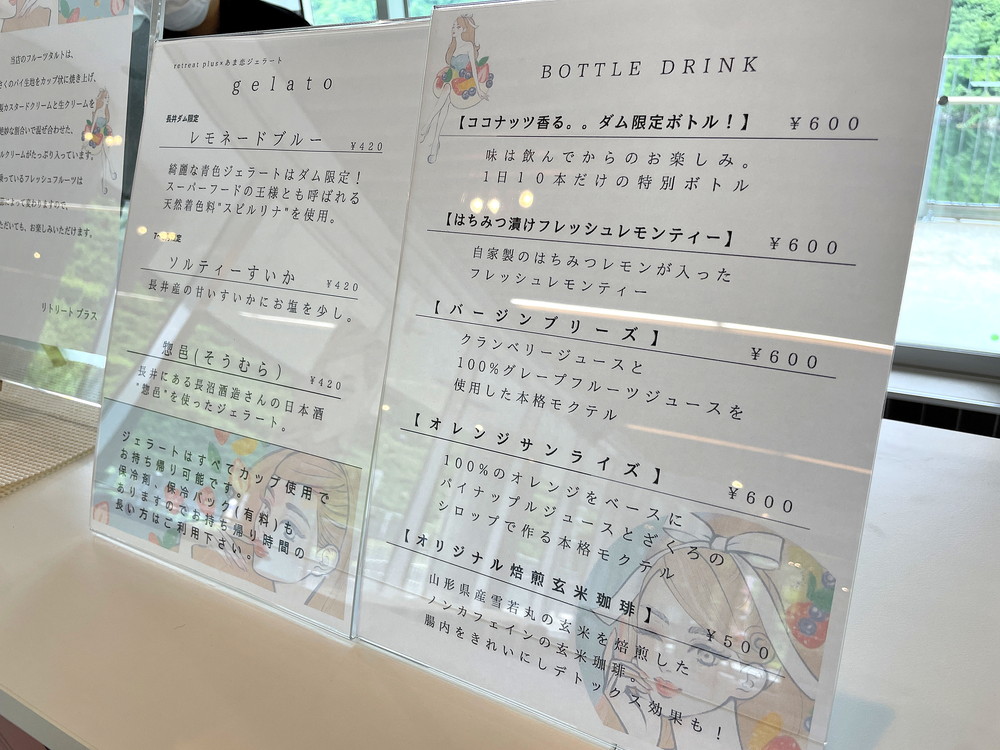 当店のフルーツタルトは、
さくのパイ生地をカップ状に焼き上げ、
カスタードクリームと生クリームを
妙な割合で混ぜ合わせた、
ルクリームがたっぷり入っています。
っているフレッシュフルーツは
よって変わりますので、
ただいても、お楽しみいただけます。
リトリートプラス
retreat plus×あま恋ジェラート
gelato
長井ダム限定
レモネードブルー ¥420
綺麗な青色ジェラートはダム限定！
スーパーフードの王様とも呼ばれる
天然着色料"スピルリナ"を使用。
定
ソルティーすいか ¥420
長井産の甘いすいかにお塩を少し。
惣邑(そうむら) ¥420
長井にある長沼酒造さんの日本酒
"惣邑"を使ったジェラート。
ジェラートはすべてカップ使用で
お持ち帰り可能です。
保冷剤、保冷バック(有料)も
ありますのでお持ち帰り時間の
長い方はご利用下さい。
BOTTLE DRINK
【ココナッツ香る。。ダム限定ボトル！】 ¥600
味は飲んでからのお楽しみ。
1日10本だけの特別ボトル
【はちみつ漬けフレッシュレモンティー】 ¥600
自家製のはちみつレモンが入った
フレッシュレモンティー
【バージンブリーズ】 ¥600
クランベリージュースと
100%グレープフルーツジュースを
使用した本格モクテル
【オレンジサンライズ】 ¥600
100%のオレンジをベースに
パイナップルジュースとざくろの
シロップで作る本格モクテル
【オリジナル焙煎玄米珈琲】 ¥500
山形県産雪若丸の玄米を焙煎した
ノンカフェインの玄米珈琲。
腸内をきれいにしデトックス効果も！